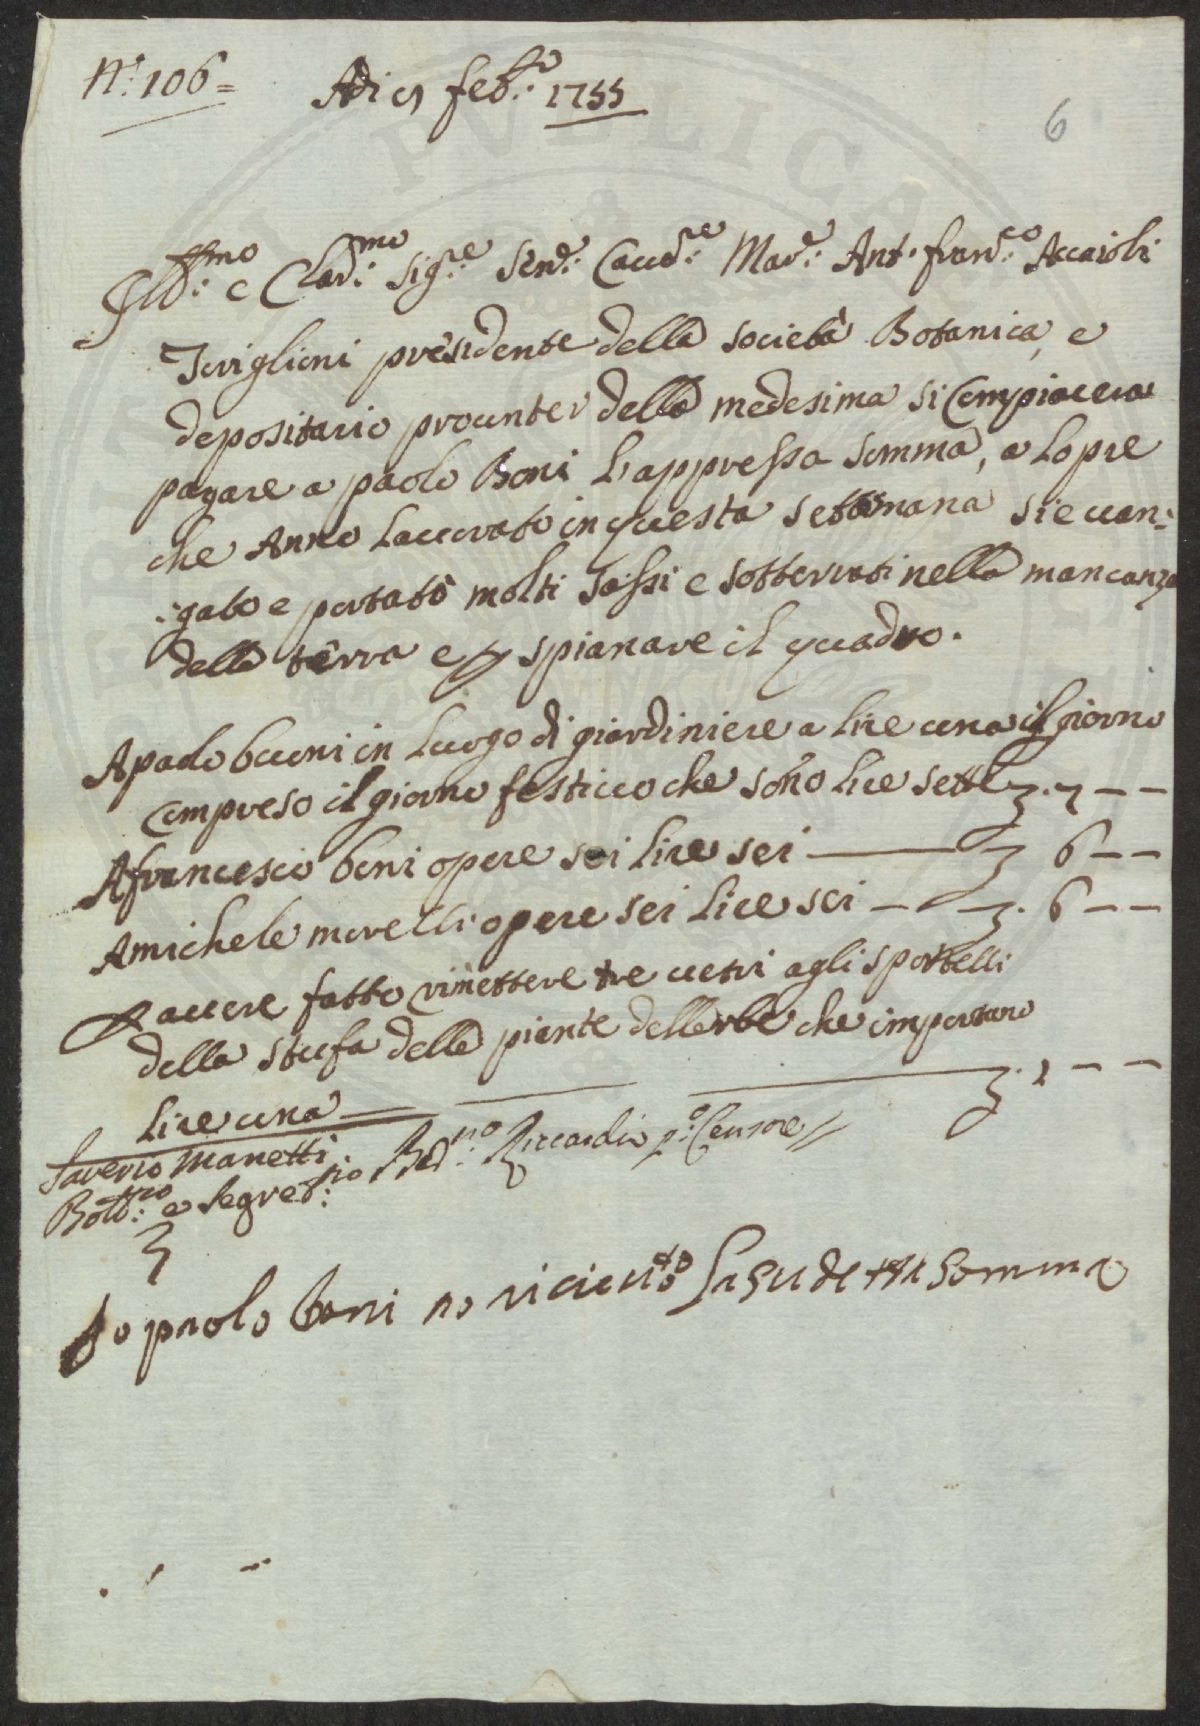 N.° 106 =
Adi 9 feb.ro 1755
6
Ill.mo e Clar.mo Sig.re Sen.e Cav.re Mar.e Ant. fran.co Accaioli
Toriglioni presidente della società Botanica, e
depositario prounter della medesima si Compiaccia
pagare a paolo Boni L'appressa Somma, a Lopre
che Anno Lauorato in questa settimana si e uan:
:gato e portato molti Sassi e sotterrati nella mancanza
della terra e p spianare il quadro.
A paolo buoni in Luogo di giardiniere a lire una il giorno
Compreso il giorno festiuo che sono lire sette 7 - -
A francesco boni opere sei lire sei 6 - -
A michele morelli opere sei Lire sei 6 - -
p auere fatto rimettere tre uetri agli sportelli
della stufa delle piante dellerbe che importano
Lire una 1 - -
Saverio Manetti
Bott.rio e Segret.rio Bed.no Riccardi p.o Censore
Io paolo boni o riceuto La sudetta Somma